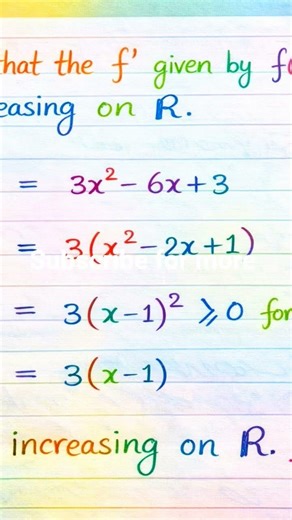 that the f' given by f
easing on R.
= 3x² - 6x + 3
= 3(x² - 2x + 1)
Subscribe for more
= 3(x-1)² ⩾ 0 for
= 3(x-1)
increasing on R.